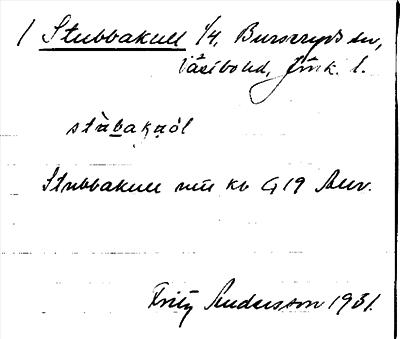 / Stubbakull 1/4, Burseryds sn,
Västbo hd, Jönk. l.
stùbakạól
Stubbakull nu kb G 19 Bur.
Fritz Andersson 1931.